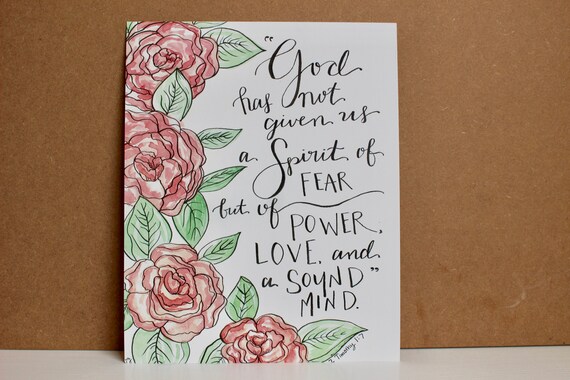 "God
has not
given us
a Spirit of
FEAR
but of
POWER,
LOVE, and
a SOUND"
MIND.
2 Timothy 1:7